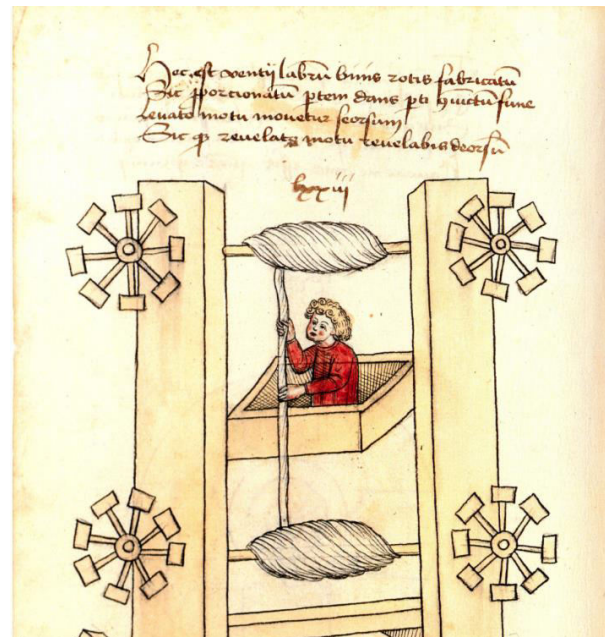 Hec est ventij labrū binis rotis fabricatū
Sic ꝓporcionatū ptem dans pti iūctū fune
Levato motu movetur seorsum
Sic revelat motu revelabis deorsū
lxxiii